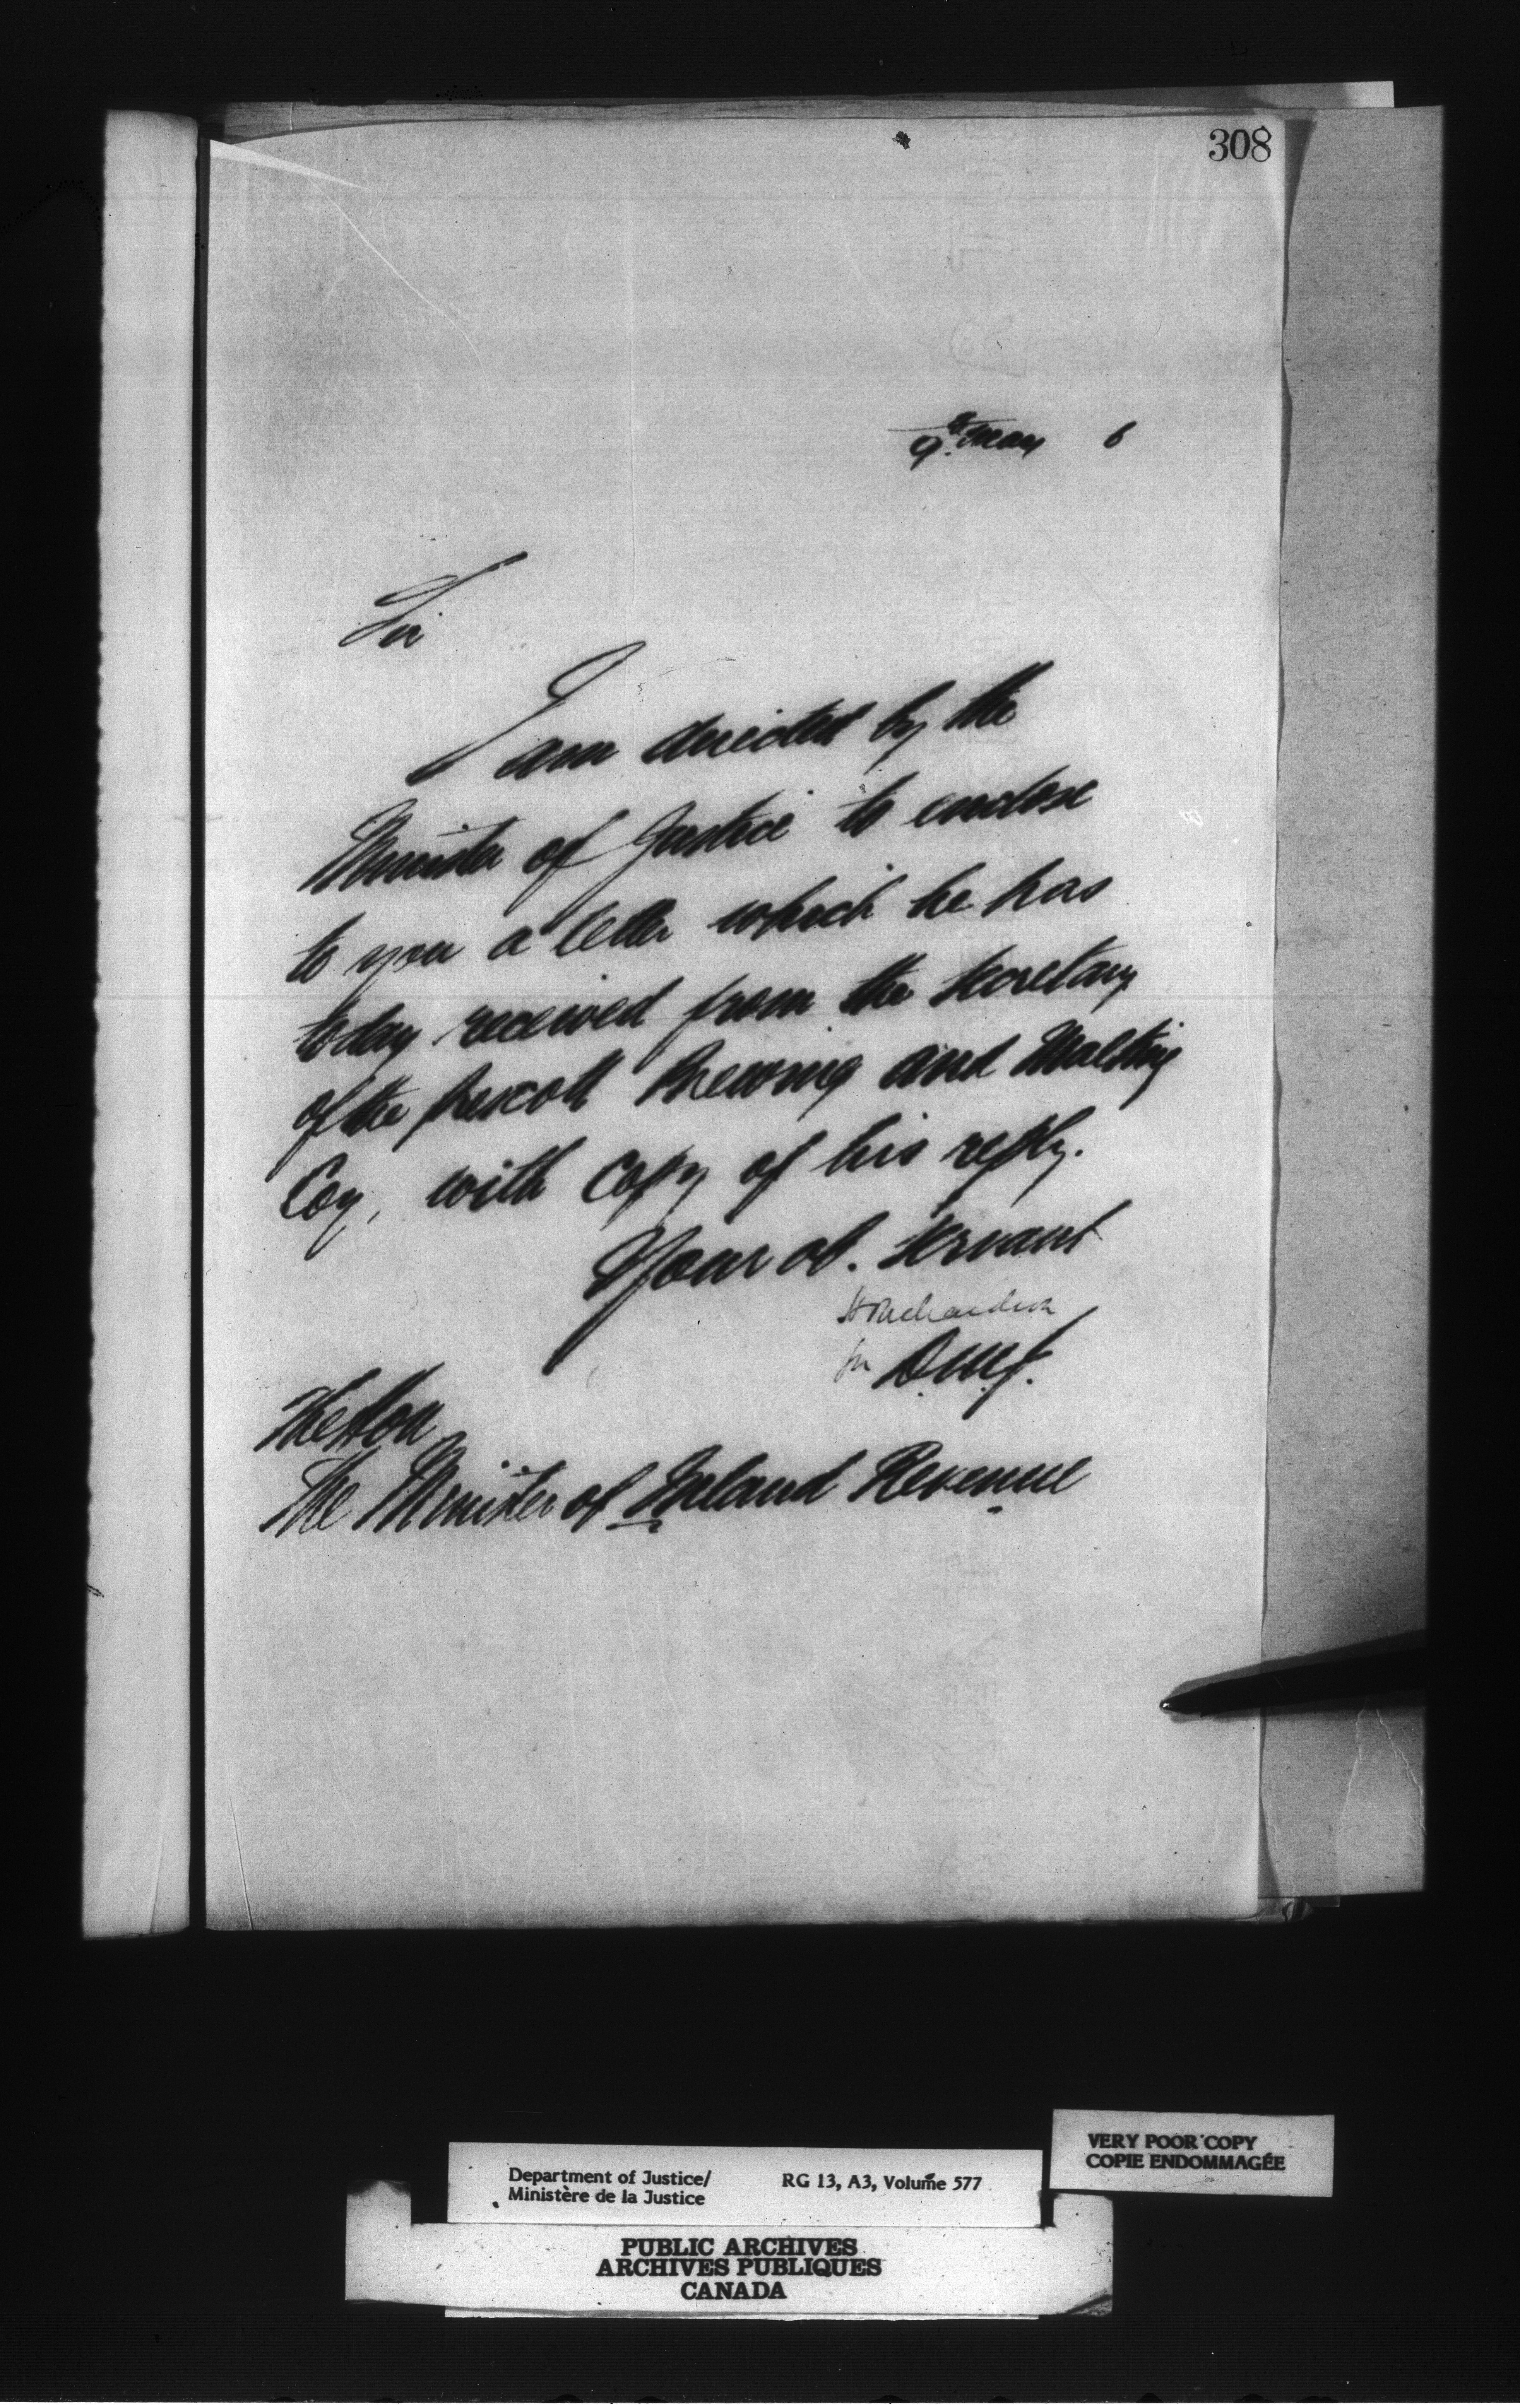 308
9th May 6
Sir
I am directed by the
Minister of Justice to enclose
to you a letter which he has
today received from the Secretary
of the Prescott Brewing and Malting
Coy, with copy of his reply.
Your ob. servant
H Richardson
for D.M.J.
The Hon
The Minister of Inland Revenue
VERY POOR COPY
COPIE ENDOMMAGÉE
Department of Justice/ RG 13, A3, Volume 577
Ministère de la Justice
PUBLIC ARCHIVES
ARCHIVES PUBLIQUES
CANADA